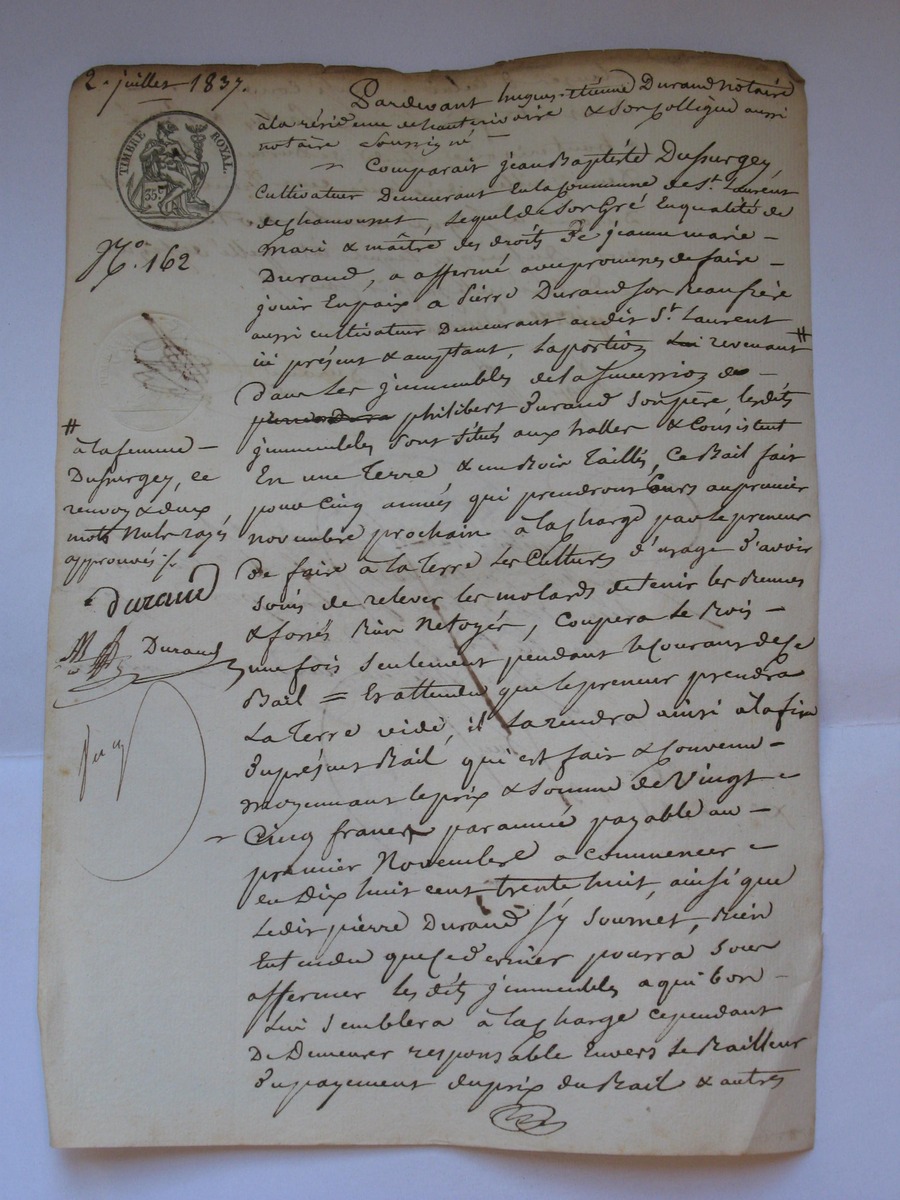 2. juillet 1837.
Pardevant hugues-étienne Durand notaire
à la résidence de hauterivoire & son collègue aussi
notaire soussigné —
TIMBRE ROYAL.
35c
No. 162
Comparait jean Baptiste Dussurgey
Cultivateur Demeurant En la Commune de St. Laurent
de chamousset, lequel de son Gré En qualité de
mari & maître des droits De jeanne marie —
Durand, a affermé avec promesses de faire —
jouir En paix a Pierre Durand son Beaufrère
aussi cultivateur Demeurant audit St. Laurent
ici présent & acceptant, la portion revenant #
Dans Les jmmeubles de la succession de —
philibert Durand son père, les dits
jmmeubles sont situés aux halles & Consistent
En une Terre & un Bois Taillis, Ce Bail fait
pour Cinq années qui prendront Cours au premier
novembre prochain à la charge par le preneur
De faire à la Terre Les Cultures d'usage D'avoir
soins de relever les molards de tenir les
& fossés Bien Netoyés, Coupera Le Bois —
une fois seulement pendant le Courant de Ce
Bail = Et attendu que le preneur prendra
La Terre vide, il La rendra ainsi à la fin
Du présent Bail, qui est fait & Convenu —
moyennant le prix & somme de Vingt =
Cinq francs par année payable au —
premier Novembre a commencer =
en Dix huit cent trente huit, ainsi que
Ledit pierre Durand s'y soumet, Bien
Entendu que Ce dernier pourra sous
affermer les dits jmmeubles a qui bon —
Lui semblera à la charge cependant
De Demeurer responsable Envers Le Bailleur
Du payement du prix du Bail & autres
#
à la femme —
Dussurgey, ce
renvoy & deux
mots Nuls rayés
approuvés ./.
durand
Durand